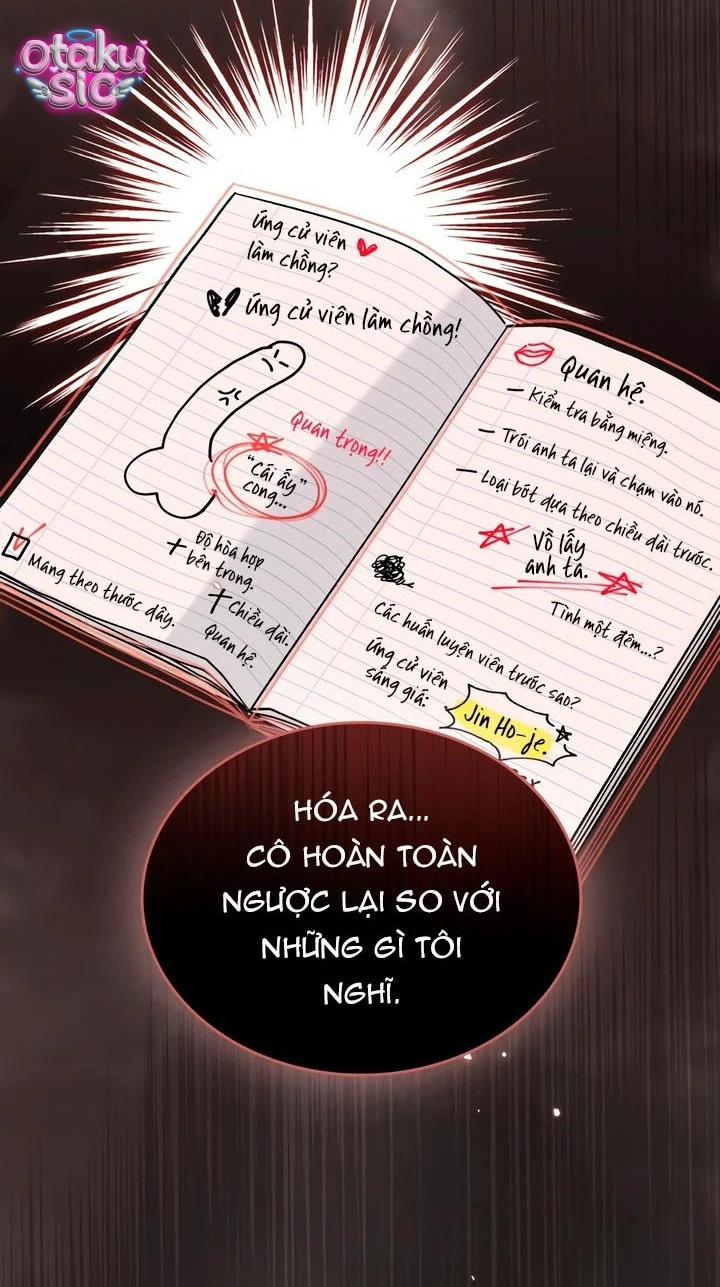 Otaku
SIC
Ứng cử viên
làm chồng?
Ứng cử viên làm chồng!
Quan trọng!!
"Cái ấy"
cong...
+ Độ hòa hợp
bên trong.
+ Chiều dài.
Quan hệ.
Mang theo thước dây.
Quan hệ.
- Kiểm tra bằng miệng.
- Trói anh ta lại và chạm vào nó.
- Loại bớt dựa theo chiều dài trước.
Vồ lấy
anh ta.
Tình một đêm...?
Các huấn luyện viên trước sao?
Ứng cử viên
sáng giá:
Jin Ho-je.
HÓA RA...
CÔ HOÀN TOÀN
NGƯỢC LẠI SO VỚI
NHỮNG GÌ TÔI
NGHĨ.